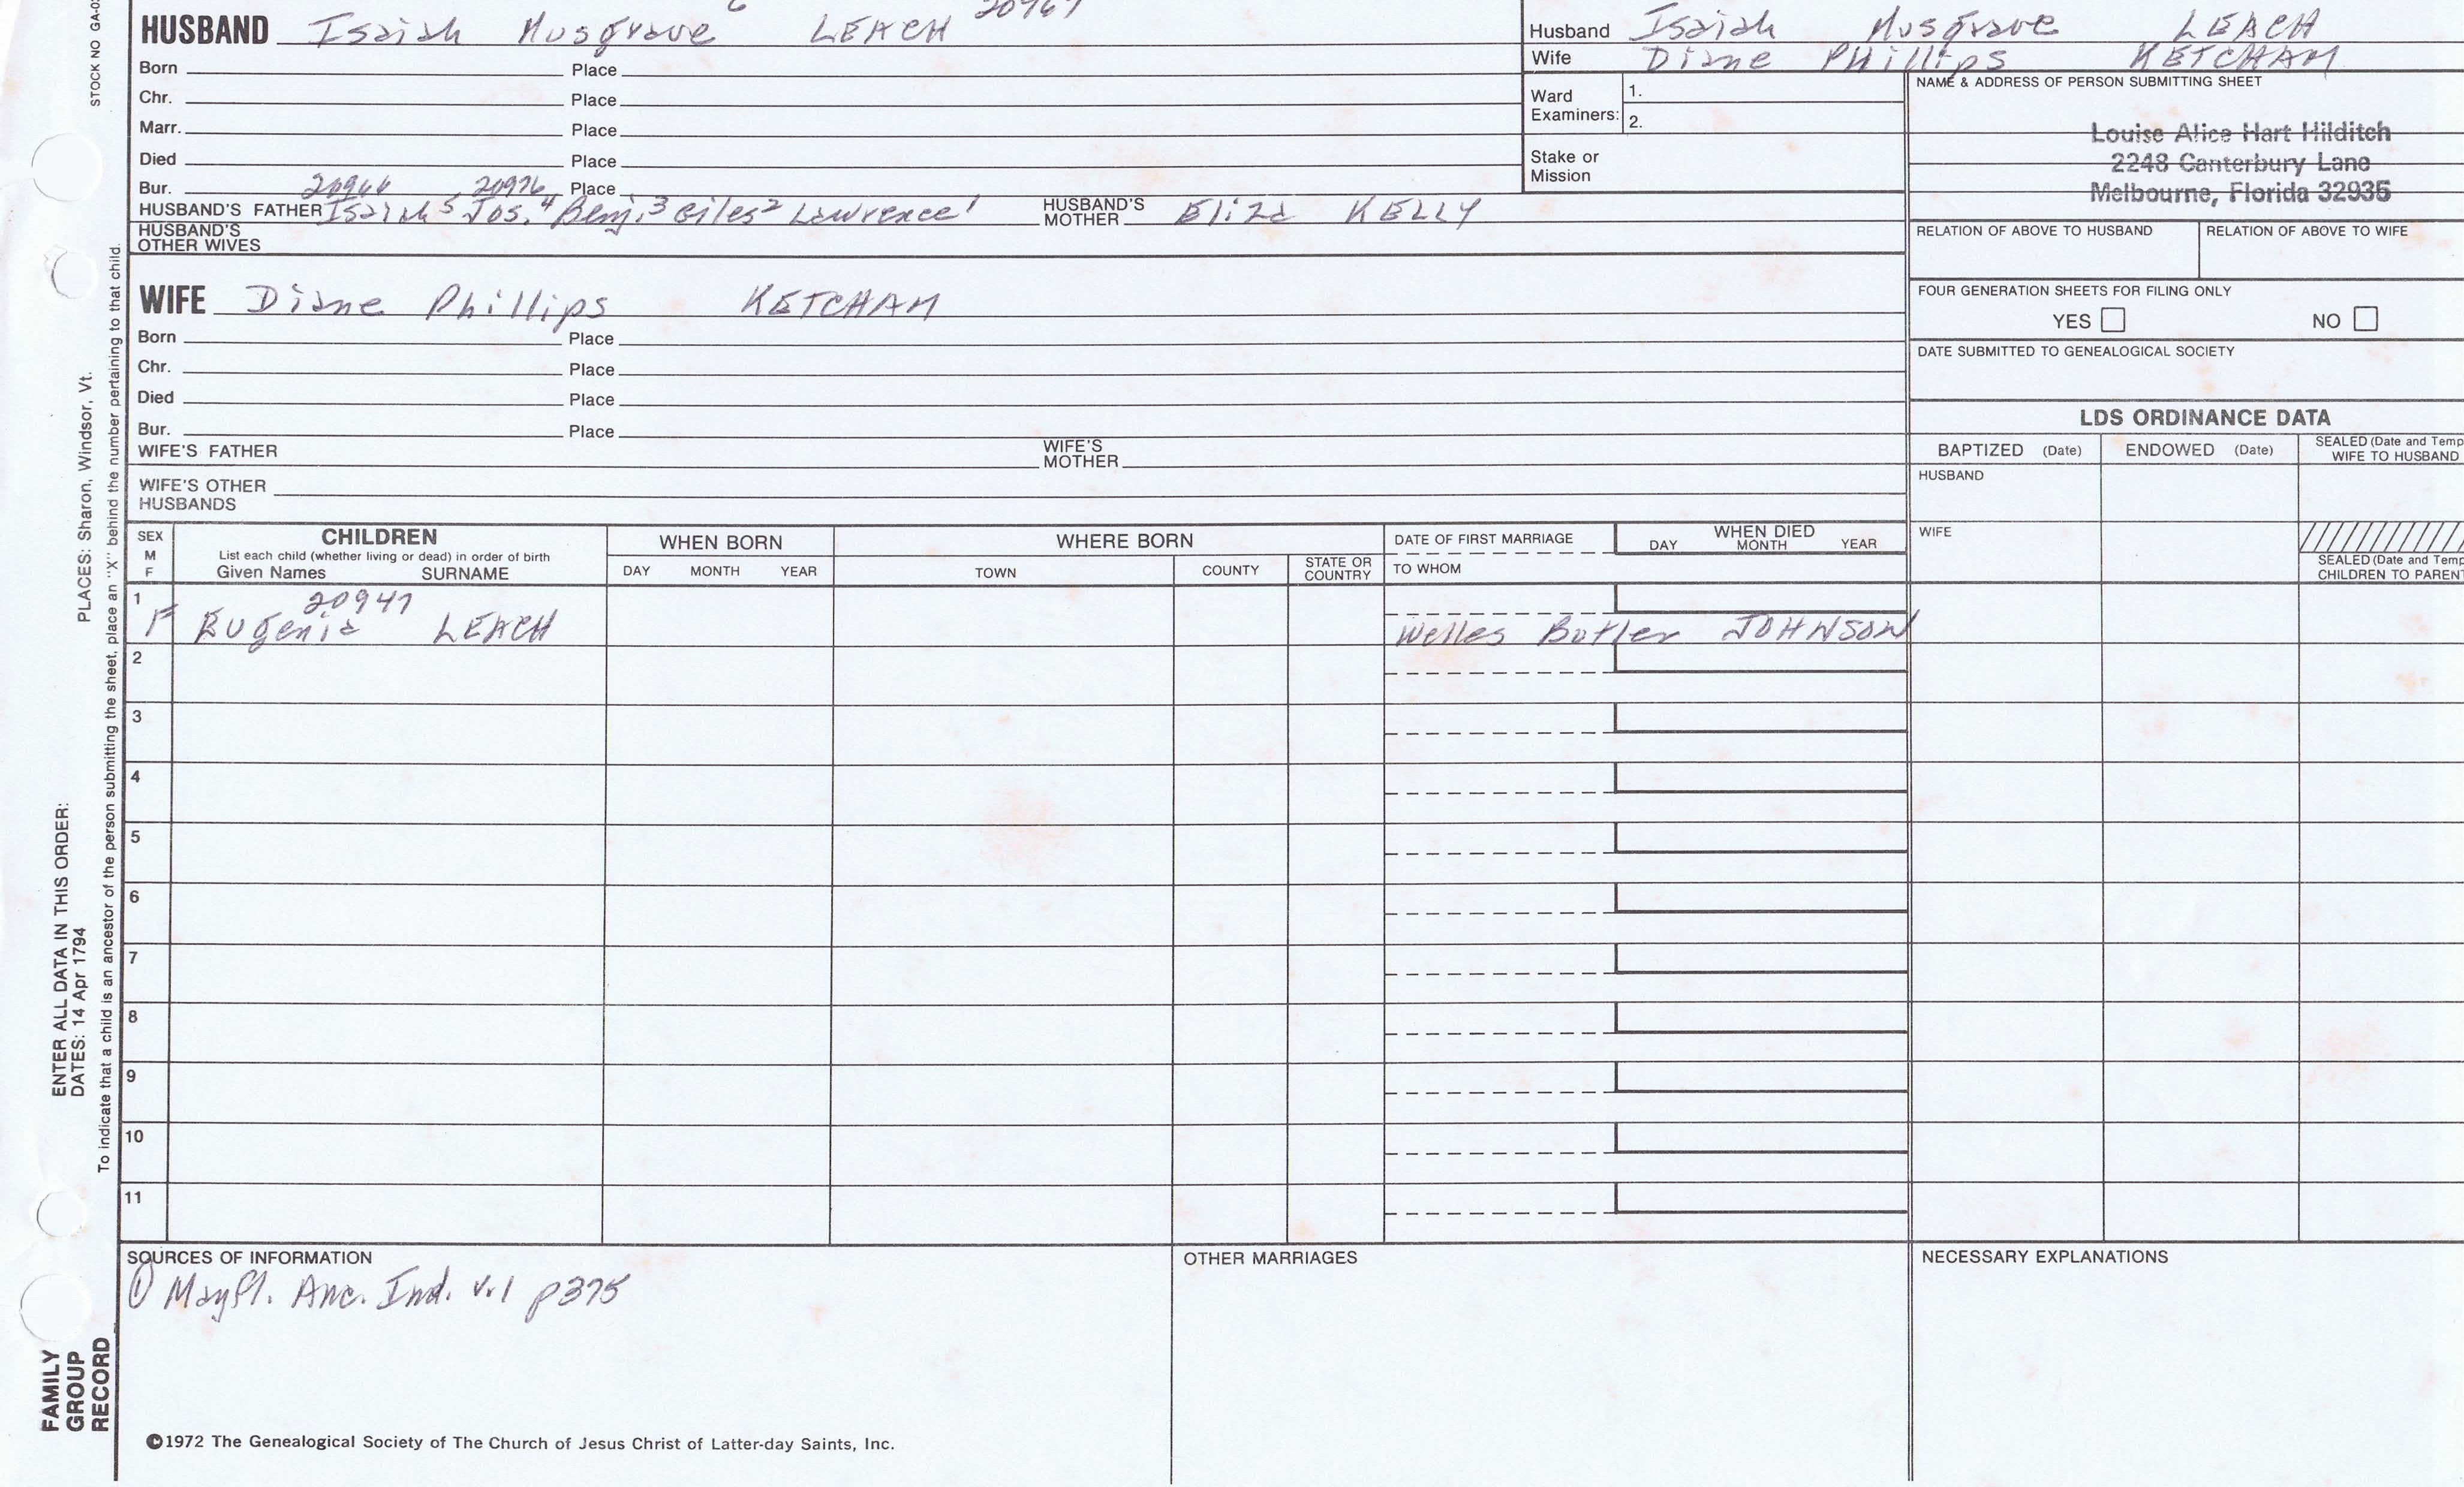 HUSBAND Isaiah Musgrave 6 LEACH
Born Place
Chr. Place
Marr. Place
Died Place
Bur. Place
20976
HUSBAND'S FATHER Isaiah 5 Jos. 4 Benj. 3 Giles 2 Lawrence 1 HUSBAND'S MOTHER Eliza KELLY
HUSBAND'S OTHER WIVES
Husband Isaiah Musgrave LEACH
Wife Diane Phillips KETCHAM
Ward Examiners: 1.
2.
Stake or Mission
NAME & ADDRESS OF PERSON SUBMITTING SHEET
Louise Alice Hart Hilditch
2248 Canterbury Lane
Melbourne, Florida 32935
RELATION OF ABOVE TO HUSBAND RELATION OF ABOVE TO WIFE
FOUR GENERATION SHEETS FOR FILING ONLY
YES NO
DATE SUBMITTED TO GENEALOGICAL SOCIETY
WIFE Diane Phillips KETCHAM
Born Place
Chr. Place
Died Place
Bur. Place
WIFE'S FATHER WIFE'S MOTHER
WIFE'S OTHER HUSBANDS
LDS ORDINANCE DATA
BAPTIZED (Date) ENDOWED (Date) SEALED (Date and Temp
WIFE TO HUSBAND
HUSBAND
WIFE
SEALED (Date and Temp
CHILDREN TO PARENT
SEX
M
F
CHILDREN
List each child (whether living or dead) in order of birth
Given Names SURNAME
WHEN BORN
DAY MONTH YEAR
WHERE BORN
TOWN COUNTY STATE OR COUNTRY
DATE OF FIRST MARRIAGE
TO WHOM
WHEN DIED
DAY MONTH YEAR
1
20947
F Eugenia LEACH Welles Butler JOHNSON
2
3
4
5
6
7
8
9
10
11
SOURCES OF INFORMATION
① Mayfl. Anc. Ind. v.1 p375
OTHER MARRIAGES
NECESSARY EXPLANATIONS
©1972 The Genealogical Society of The Church of Jesus Christ of Latter-day Saints, Inc.
STOCK NO GA-0
PLACES: Sharon, Windsor, Vt.
ENTER ALL DATA IN THIS ORDER:
DATES: 14 Apr 1794
To indicate that a child is an ancestor of the person submitting the sheet, place an "X" behind the number pertaining to that child.
FAMILY
GROUP
RECORD